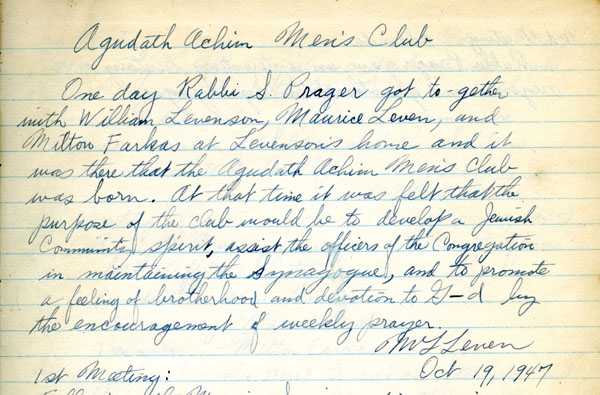 Agudath Achim Men's Club
One day Rabbi S. Prager got to-gether
with William Levenson, Maurice Leven, and
Milton Farkas at Levenson's home and it
was there that the Agudath Achim Men's Club
was born. At that time it was felt that the
purpose of the club would be to develop a Jewish
Community spirit, assist the officers of the Congregation
in maintaining the Synagogue, and to promote
a feeling of brotherhood and devotion to G-d by
the encouragement of weekly prayer.
M L Leven
Oct 19, 1947
1st Meeting: